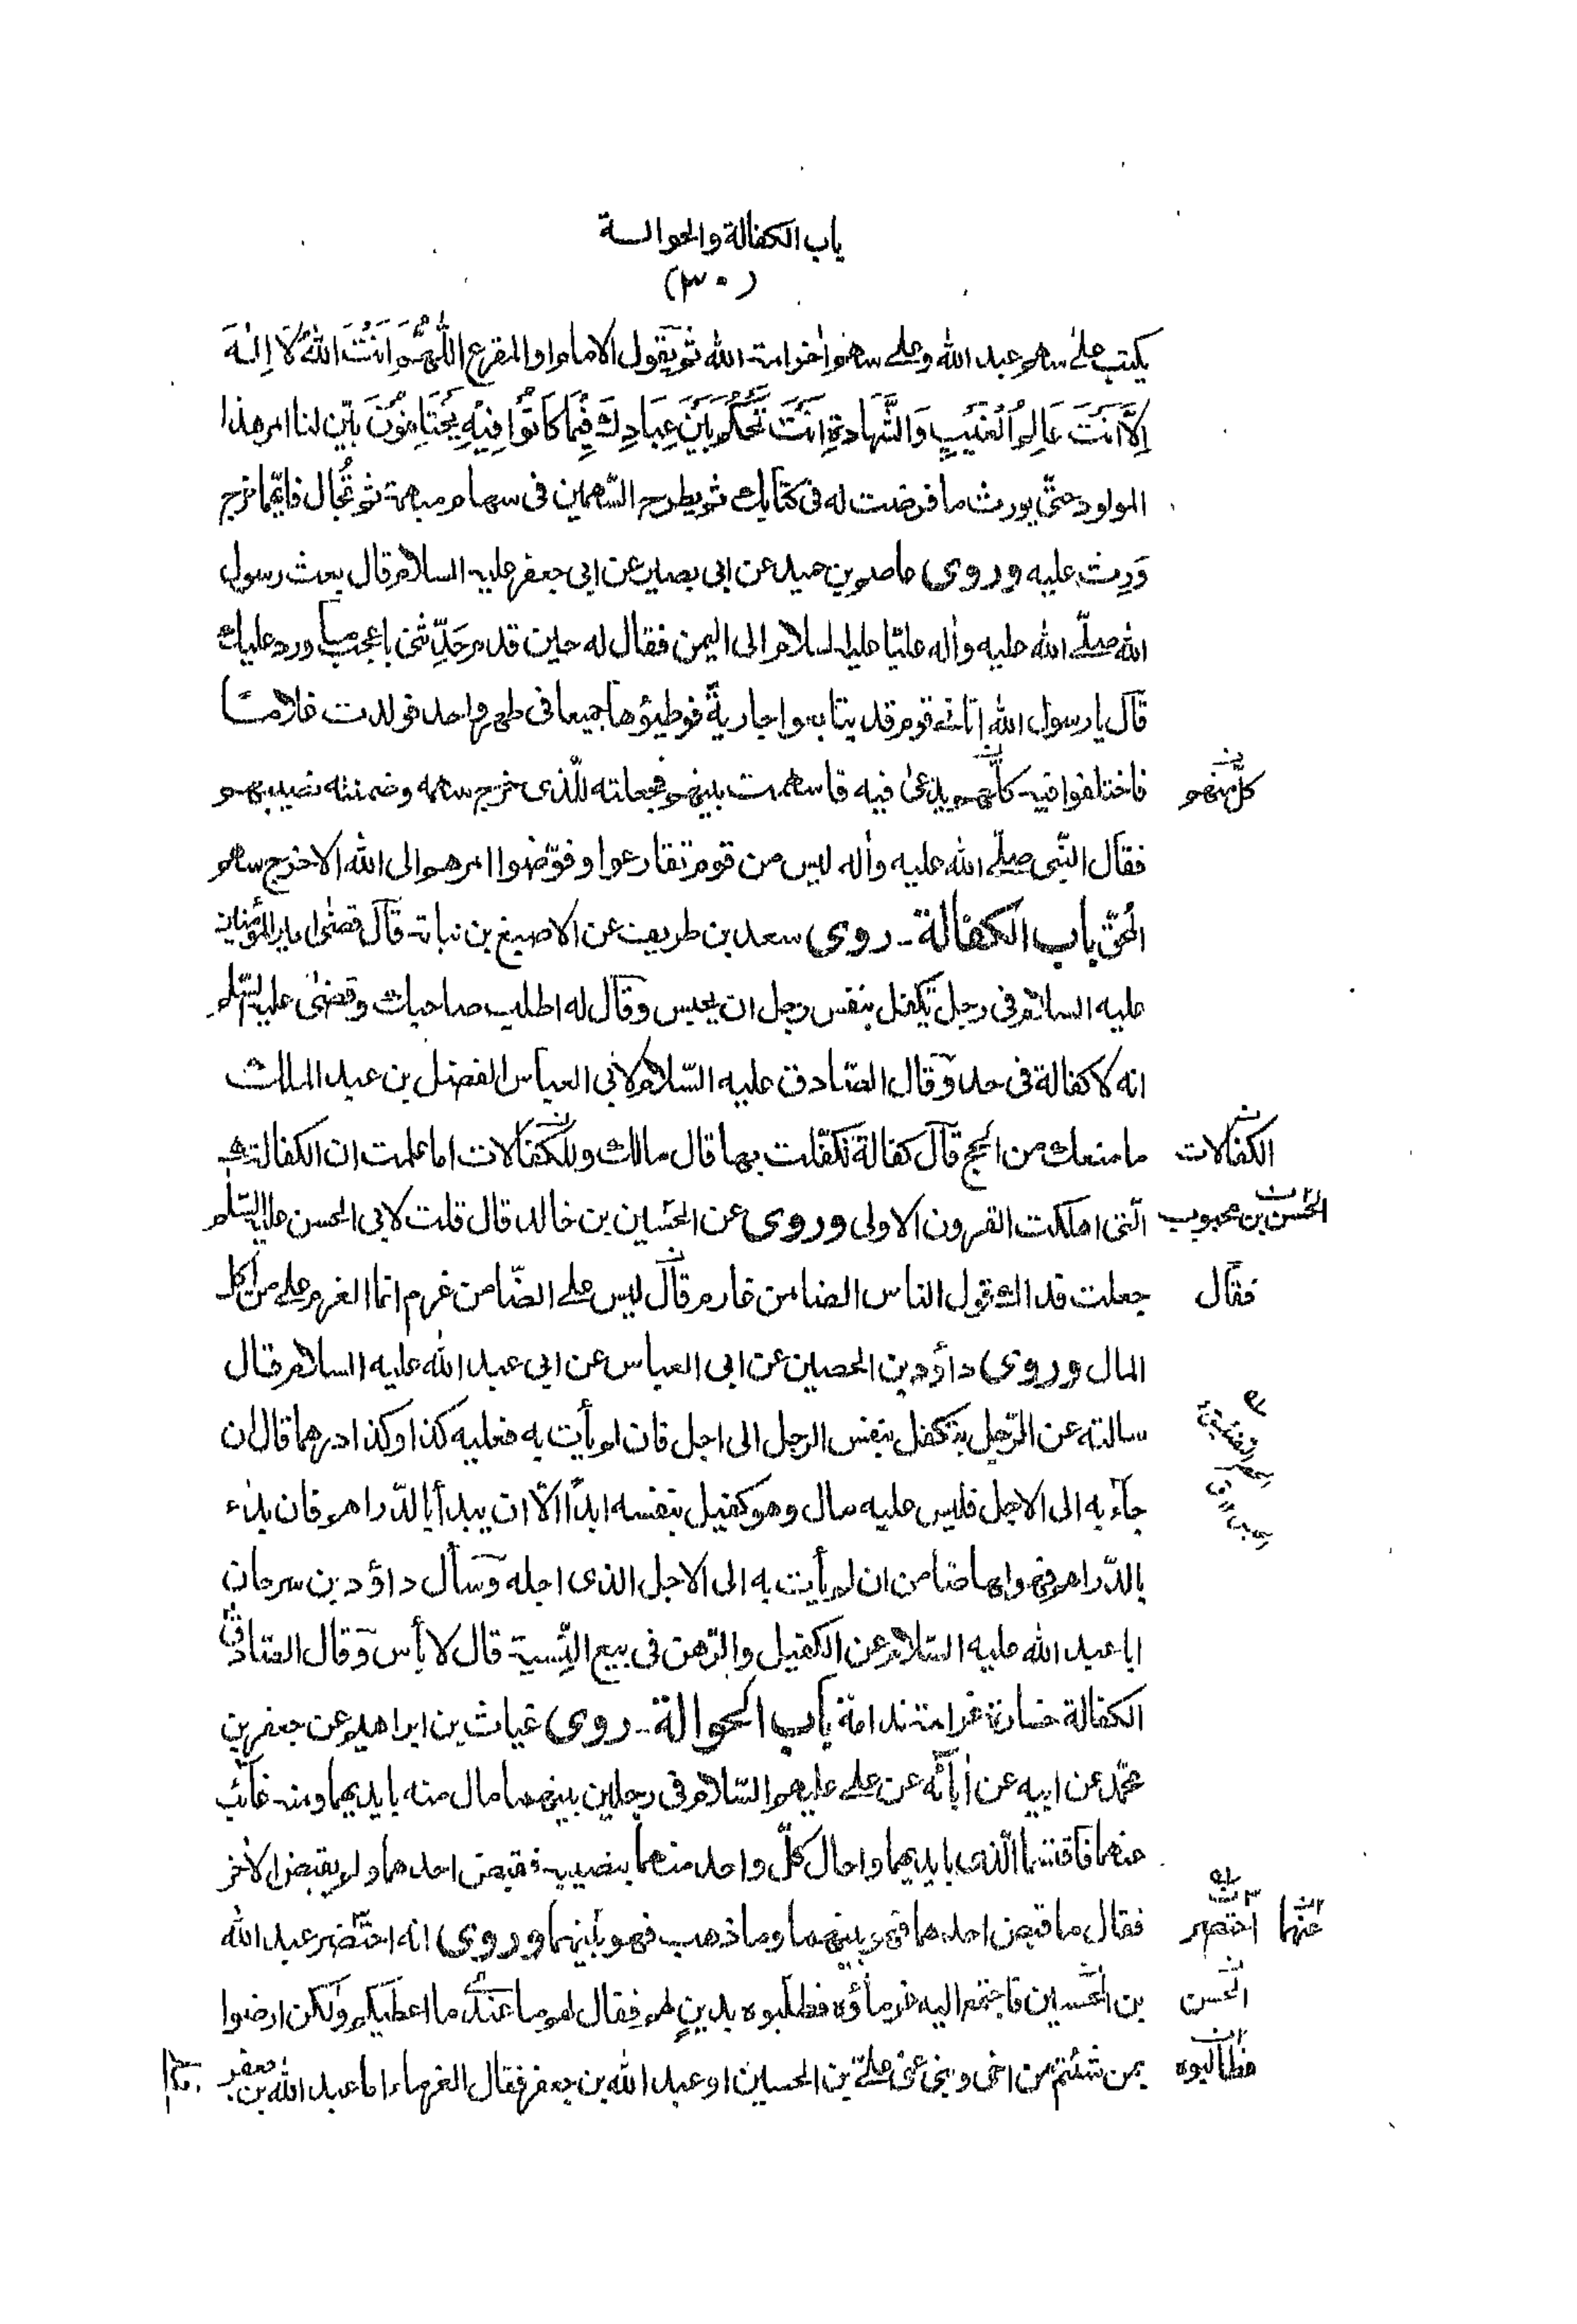 باب الكفالة والحوالة
(٣٠)
يكتب على سهم عبد الله وعلى سهم اخر امة الله ثم يقول الامام او المقرع اللَّهُمَّ اَنْتَ اللهُ لَا اِلٰهَ
اِلَّا اَنْتَ عَالِمُ الْغَيْبِ وَالشَّهَادَةِ اَنْتَ تَحْكُمُ بَيْنَ عِبَادِكَ فِيْمَا كَانُوْا فِيْهِ يَخْتَلِفُوْنَ بيّن لنا امر هذا
المولود حتّى يورث ما فرضت له فى كتابك ثم يطرح السّهمين فى سهام مبهمة ثم تُجال فايّهما خرج
وَرِث عليه وروى عاصم بن حميد عن ابى بصير عن ابى جعفر عليه السلام قال بعث رسول
الله صلّى الله عليه واٰله عليّا عليه السلام الى اليمن فقال له حين قدم حَدِّثنى باعجب ما ورد عليك
قال يا رسول الله اتانى قوم قد يتابعوا جاريةً فوطيؤها جميعا فى طهر واحد فولدت غلامًا
فاختلفوا فيه كلّهم يدّعى فيه فاسهمت بينهم فجعلته للّذى خرج سهمه وضمنته نصيبهم
كلٌّ منهم
فقال النّبى صلّى الله عليه واٰله ليس من قوم تقارعوا وفوّضوا امرهم الى الله الا خرج سهم
المُحِقّ باب الكفالة۔ روى سعد بن طريف عن الاصبغ بن نباتة قال قضى امير المؤمنين
عليه السلام فى رجل تكفل بنفس رجل ان يحبس وقال له اطلب صاحبك وقضى عليه السّلم
انه لا كفالة فى حد وقال الصّادق عليه السّلام لابى العباس الفضل بن عبد الملك
ما منعك من الحج قال كفالة تكفّلت بها قال مالك وللكفالات اما علمت ان الكفالة هى
الكفالات
الّتى اهلكت القرون الاولى وروى عن الحسين بن خالد قال قلت لابى الحسن عليه السّلم
الحسن بن محبوب
جعلت فداك قول الناس الضامن غارم قال ليس على الضّامن غرم انما الغرم على من اكل
فقال
المال وروى داؤد بن الحصين عن ابى العباس عن ابى عبد الله عليه السلام قال
سالته عن الرّجل يتكفل بنفس الرجل الى اجل فان لم يأت به فعليه كذا وكذا درهما قال ان
جآء به الى الاجل فليس عليه مال وهو كفيل بنفسه ابدًا الّا ان يبدأ بالدّراهم فان بدء
بالدّراهم فهو لها ضامن ان لم يأت به الى الاجل الذى اجله وسأل داؤد بن سرحان
ابا عبد الله عليه السّلام عن الكفيل والرّهن فى بيع النّسية قال لا بأس وقال الصّادقؑ
الكفالة خسارة غرامة ندامة باب الحوالة۔ روى غياث بن ابراهيم عن جعفر بن
محمّد عن ابيه عن اٰبائه عن على عليهم السّلام فى رجلين بينهما مال منه بايديهما ومنه غائب
عنهما فاقتسما الّذى بايديهما واحال كلّ واحد منهما بنصيبه فقبض احدهما ولم يقبض الاٰخر
فقال ما قبض احدهما فهو بينهما وما ذهب فهو بينهما وروى انه احتضر عبد الله
احتضر عنهما
بن الحسين فاجتمع اليه غرماؤه فطلبوه بدينٍ لهم فقال لهم ما عندى ما اعطيكم ولكن ارضوا
الحسن
بمن شئتم من اخى وبنى عمّى علىّ بن الحسين او عبد الله بن جعفر فقال الغرماء اما عبد الله بن جعفر
فطالبوه